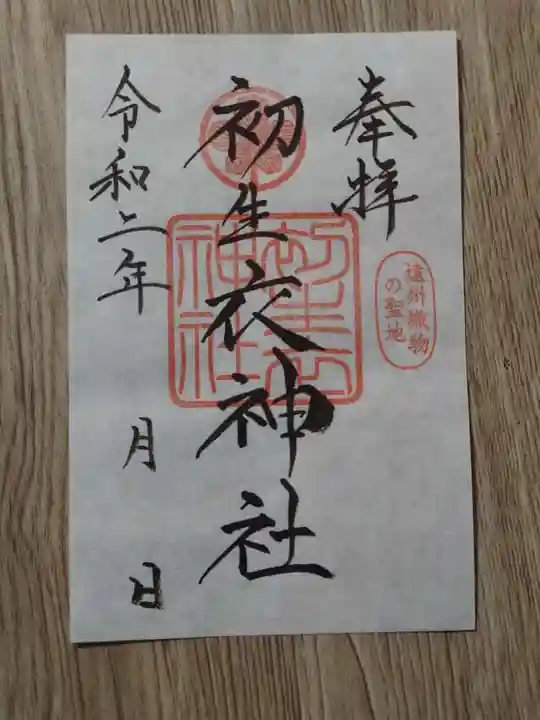 奉拝
遠州織物
の聖地
初生衣神社
初生衣
神社
令和二年
月
日